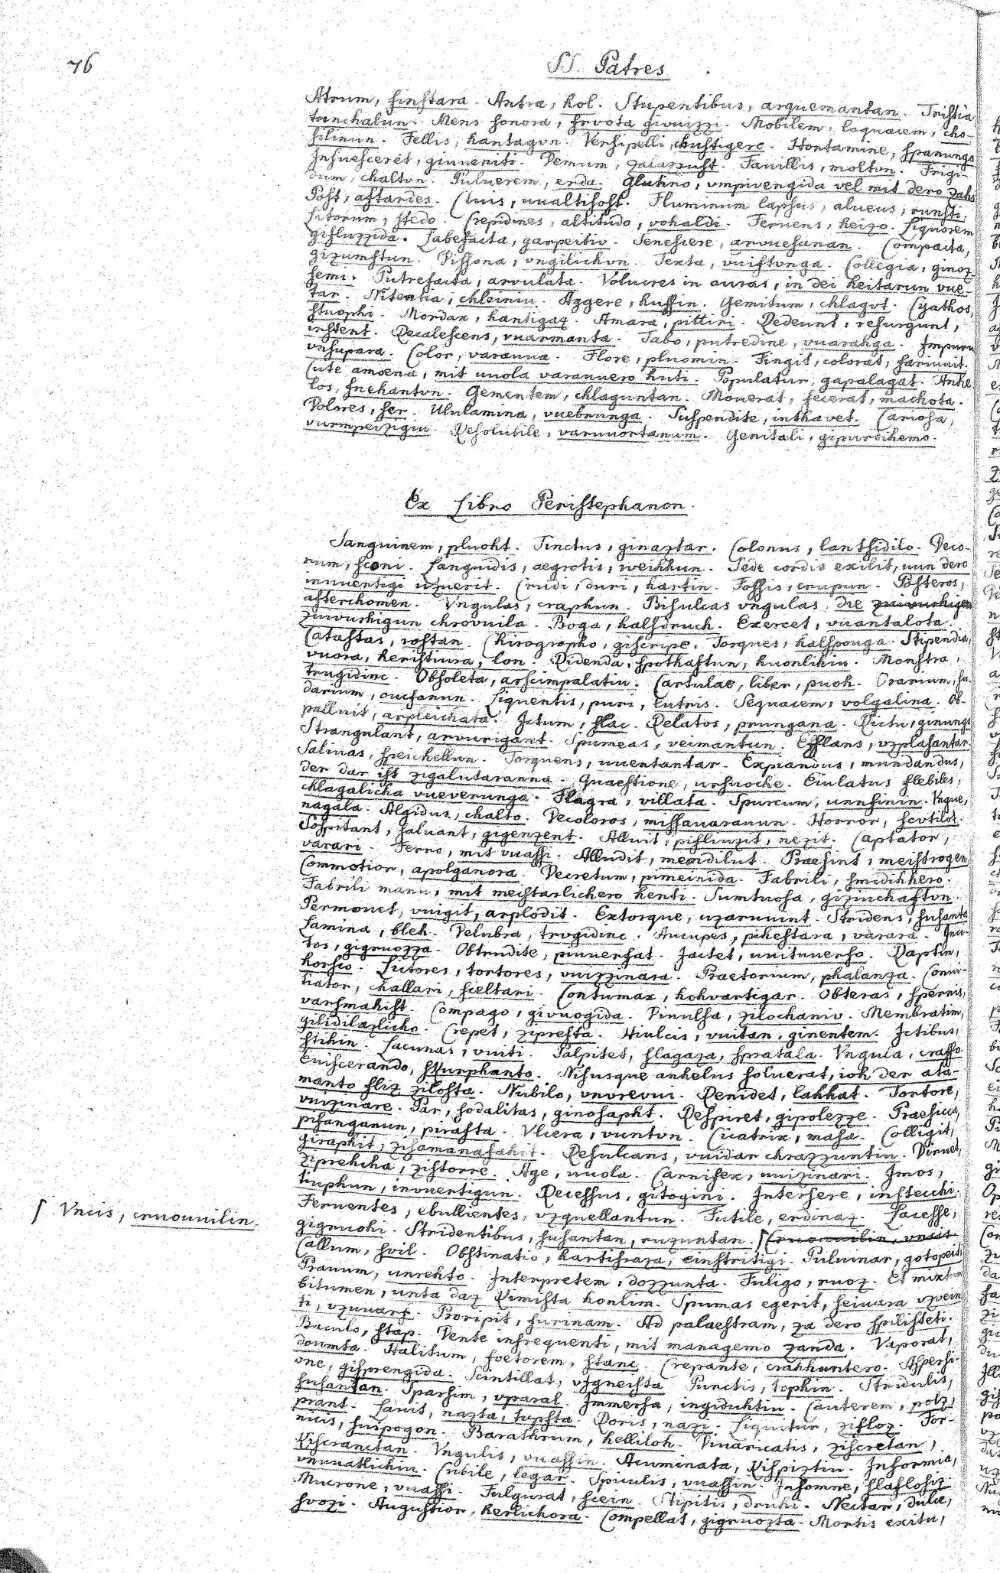 76
SS. Patres
Atrum, finstara. Antra, hol. Stupentibus, arquemantan. Tristia
trinchalun. Mens sonora, frvota givuizzi. Mobilem, loquacem, cho-
silinun. Fellis, hantagvn. Versipelli, chustigere. Hortamine, spanunga
Insuesceret, giuueniti. Demum, zaiazzust. Fauillis, moltvn. Frigi-
dum, chaltvn. Puluerem, erda. Glutino, vmpivengida vel mit dero zahi
Post, aftardes. Cluis, uualtisost. Fluminum lapsus, alueus, runsti,
sitorum, stedo. Crepidines, altitudo, vohaldi. Feruens, heizo. Liquorem
gisluzzida. Labefacta, garpeitiv. Senescere, arvuesanan. Compacta,
gizumftun. Vissona, vngilichvn. Texta, vuiftvnga. Collegia, ginoz
semi. Putrefacta, arvulata. Volucres in auras, in dei heitarun vue-
tar. Nitentia, chleiniu. Aggere, huffin. Gemitum, chlagvt. Cyathos,
stuophi. Mordax, hantigaz. Amara, pittiri. Redeunt, resurgunt,
irstent. Recalescens, vuarmanta. Tabo, putredine, vuarahga. Impura
vnsupara. Color, varauua. Flore, pluomin. Fingit, colorat, faruuit.
Cute amoena, mit uuola varauuero huti. Populatur, gapalagat. Anhe-
los, fnehantvn. Gementem, chlaguntan. Mouerat, fecerat, machota.
Dolores, ser. Ululamina, vuebnunga. Suspendite, inthavet. Cariosa,
vurmpeizigiu. Resolubile, varuuortanum. Genitali, gipurdihemo.
Ex Libro Peristephanon.
Sanguinem, pluoht. Tinctus, ginaztar. Colonus, lantsidilo. Deco-
rum, sconi. Languidis, aegrotis, weihhun. Sede cordis exilit, uun dero
innuentigi uzuerit. Crudi, duri, hartin. Fossis, crupun. Posteros,
afterchomen. Vngulas, craphun. Bisulcas vngulas, die
zuivurhigun chrovuila. Boga, halsdruch. Exercet, vuantalota.
Catastas, rostan. Chirographo, giscripe. Torques, halspouga. Stipendia,
vuora, heristiura, lon. Ridenda, spothaftun, huonlihiu. Monstra,
trugidinc. Obsoleta, arscimpalatiu. Cartulae, liber, puoh. Orarium, su-
darium, ouchanun. Liquentis, puri, lutris. Sequacem, volgalina. Ob-
palluit, arpleichata. Ictum, slac. Relatos, prungana. Victu, ginunge
Strangulant, arvurigant. Spumeas, veimantun. Efflans, vzplasantar
Salinas, speichellun. Torquens, uuentantar. Expiandus, mundandus,
der dar ist zigalutaranna. Quaestione, ursuoche. Eiulatus flebiles,
chlagalicha vuevenunga. Flagra, villata. Spurcum, unnsinin. Vngue,
nagala. Algidus, chalto. Decoloros, missauarauun. Horror, scutilot.
Sospitant, saluant, gigenzent. Alluit, pislinzit, nezit. Captator,
varari. Ferro, mit vuaffi. Alludit, mendilut. Praesint, meistrogen
Commotior, apolganora. Decretum, pimeinida. Fabrili, smidihhero.
Fabrili manu, mit meistarlichero henti. Sumtuosa, gizinchaftvn.
Permouet, vuigit, arplodit. Extorque, uzarvuint. Stridens, susanta
Lamina, bleh. Delubra, trvgidinc. Aucupes, pihestara, varara.
tos, gigruozza. Obtrudite, piuuersat. Jactet, uuituuerfo. Raptin,
horsco. Lictores, tortores, vuizzinara. Praetorium, phalanza. Conui-
tiator, challari, sceltari. Contumax, hohvartigar. Obteras, spernis,
varsmahist. Compago, givuogida. Diuulsa, zilochaniv. Membratim,
gilidilazlicho. Crepet, zipresta. Hiulcis, vuitan, ginentem. Ictibus,
stihin. Lacunas, vuiti. Palpitet, slagaza, spratala. Vngula, craffo
Euiscerando, sturphanto. Nisusque anhelus soluerat, ioh der ata-
manto fliz zilosta. Nubilo, vnvrevui. Renidet, lahhat. Tortore,
vuizinare. Par, sodalitas, ginosapht. Respiret, gipolezze. Praesicca,
pisanganun, pirasta. Vlcera, vuntvn. Cicatrix, masa. Colligit,
giraphit, zisamanafahit. Resulcans, vuidar chrazzuntin. Diruet,
ziprehcha, zistorre. Age, uuola. Carnifex, uuizinari. Imos,
tiuphun, invuertigun. Recessus, gitogini. Intersere, instecchi.
⌈ Vncis, cruouuilin.
Feruentes, ebullientes, vzquellantun. Futile, erdinaz. Lacesse,
gigruohi. Stridentibus, susantan, ruzuntan. ⌈
Callum, svil. Obstinatio, hartifraza, einstritigi. Puluinar, gotopeih
Prauum, unrehto. Interpretem, dozzunta. Fuligo, ruoz. Et mixtum
bitumen, unta daz Vimista honlim. Spumas egerit, feivara vzvein
ti, vzuuarf. Proripit, furinam. Ad palaestram, za dero spilisteti.
Baculo, stap. Vente infrequenti, mit managemo zanda. Vaporat,
doumta. Halitum, foetorem, stanc. Crepante, crahhuntero. Aspersi-
one, gisprengida. Scintillat, vzgneista. Punctis, tophin. Stridulis,
susantan. Sparsim, vparal. Immersa, ingiduhtiu. Cauterem, polz,
prant. Lauit, nazta, tupfta. Roris, nazi. Liquitur, zifloz. For-
nicis, suipogon. Barathrum, helliloh. Diuaricatis, ziscretan,
Ziscranctan. Vngulis, vuaffin. Acuminata, Kispiztiu. Informia,
vnuuatlichiu. Cubile, legar. Spiculis, vuaffin. Insomne, slaflosiz.
Mucrone, vuaffi. Fulgurat, scein. Stipitis, druhi. Nectar, dulce,
svozi. Augustior, herlichora. Compellat, gigruozta. Mortis exitu,